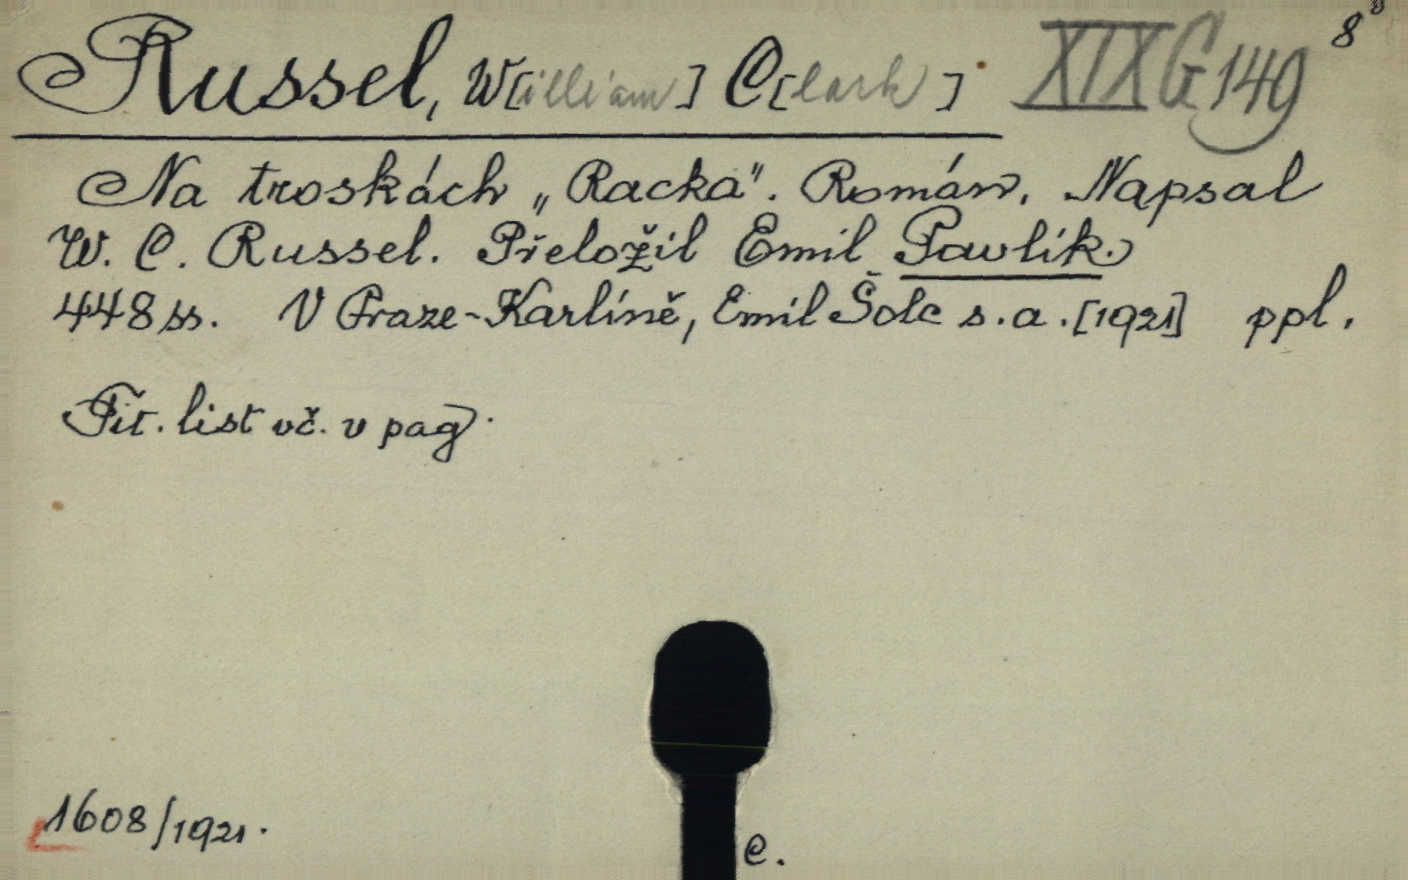 Russel, W[illiam] C[lark]. XIX G 149 8°
Na troskách „Racka". Román. Napsal
W. C. Russel. Přeložil Emil Pavlík.
448 ss. V Praze-Karlíně, Emil Šolc s.a. [1921] ppl.
Tit. list vč. v pag.
1608/1921.
C.